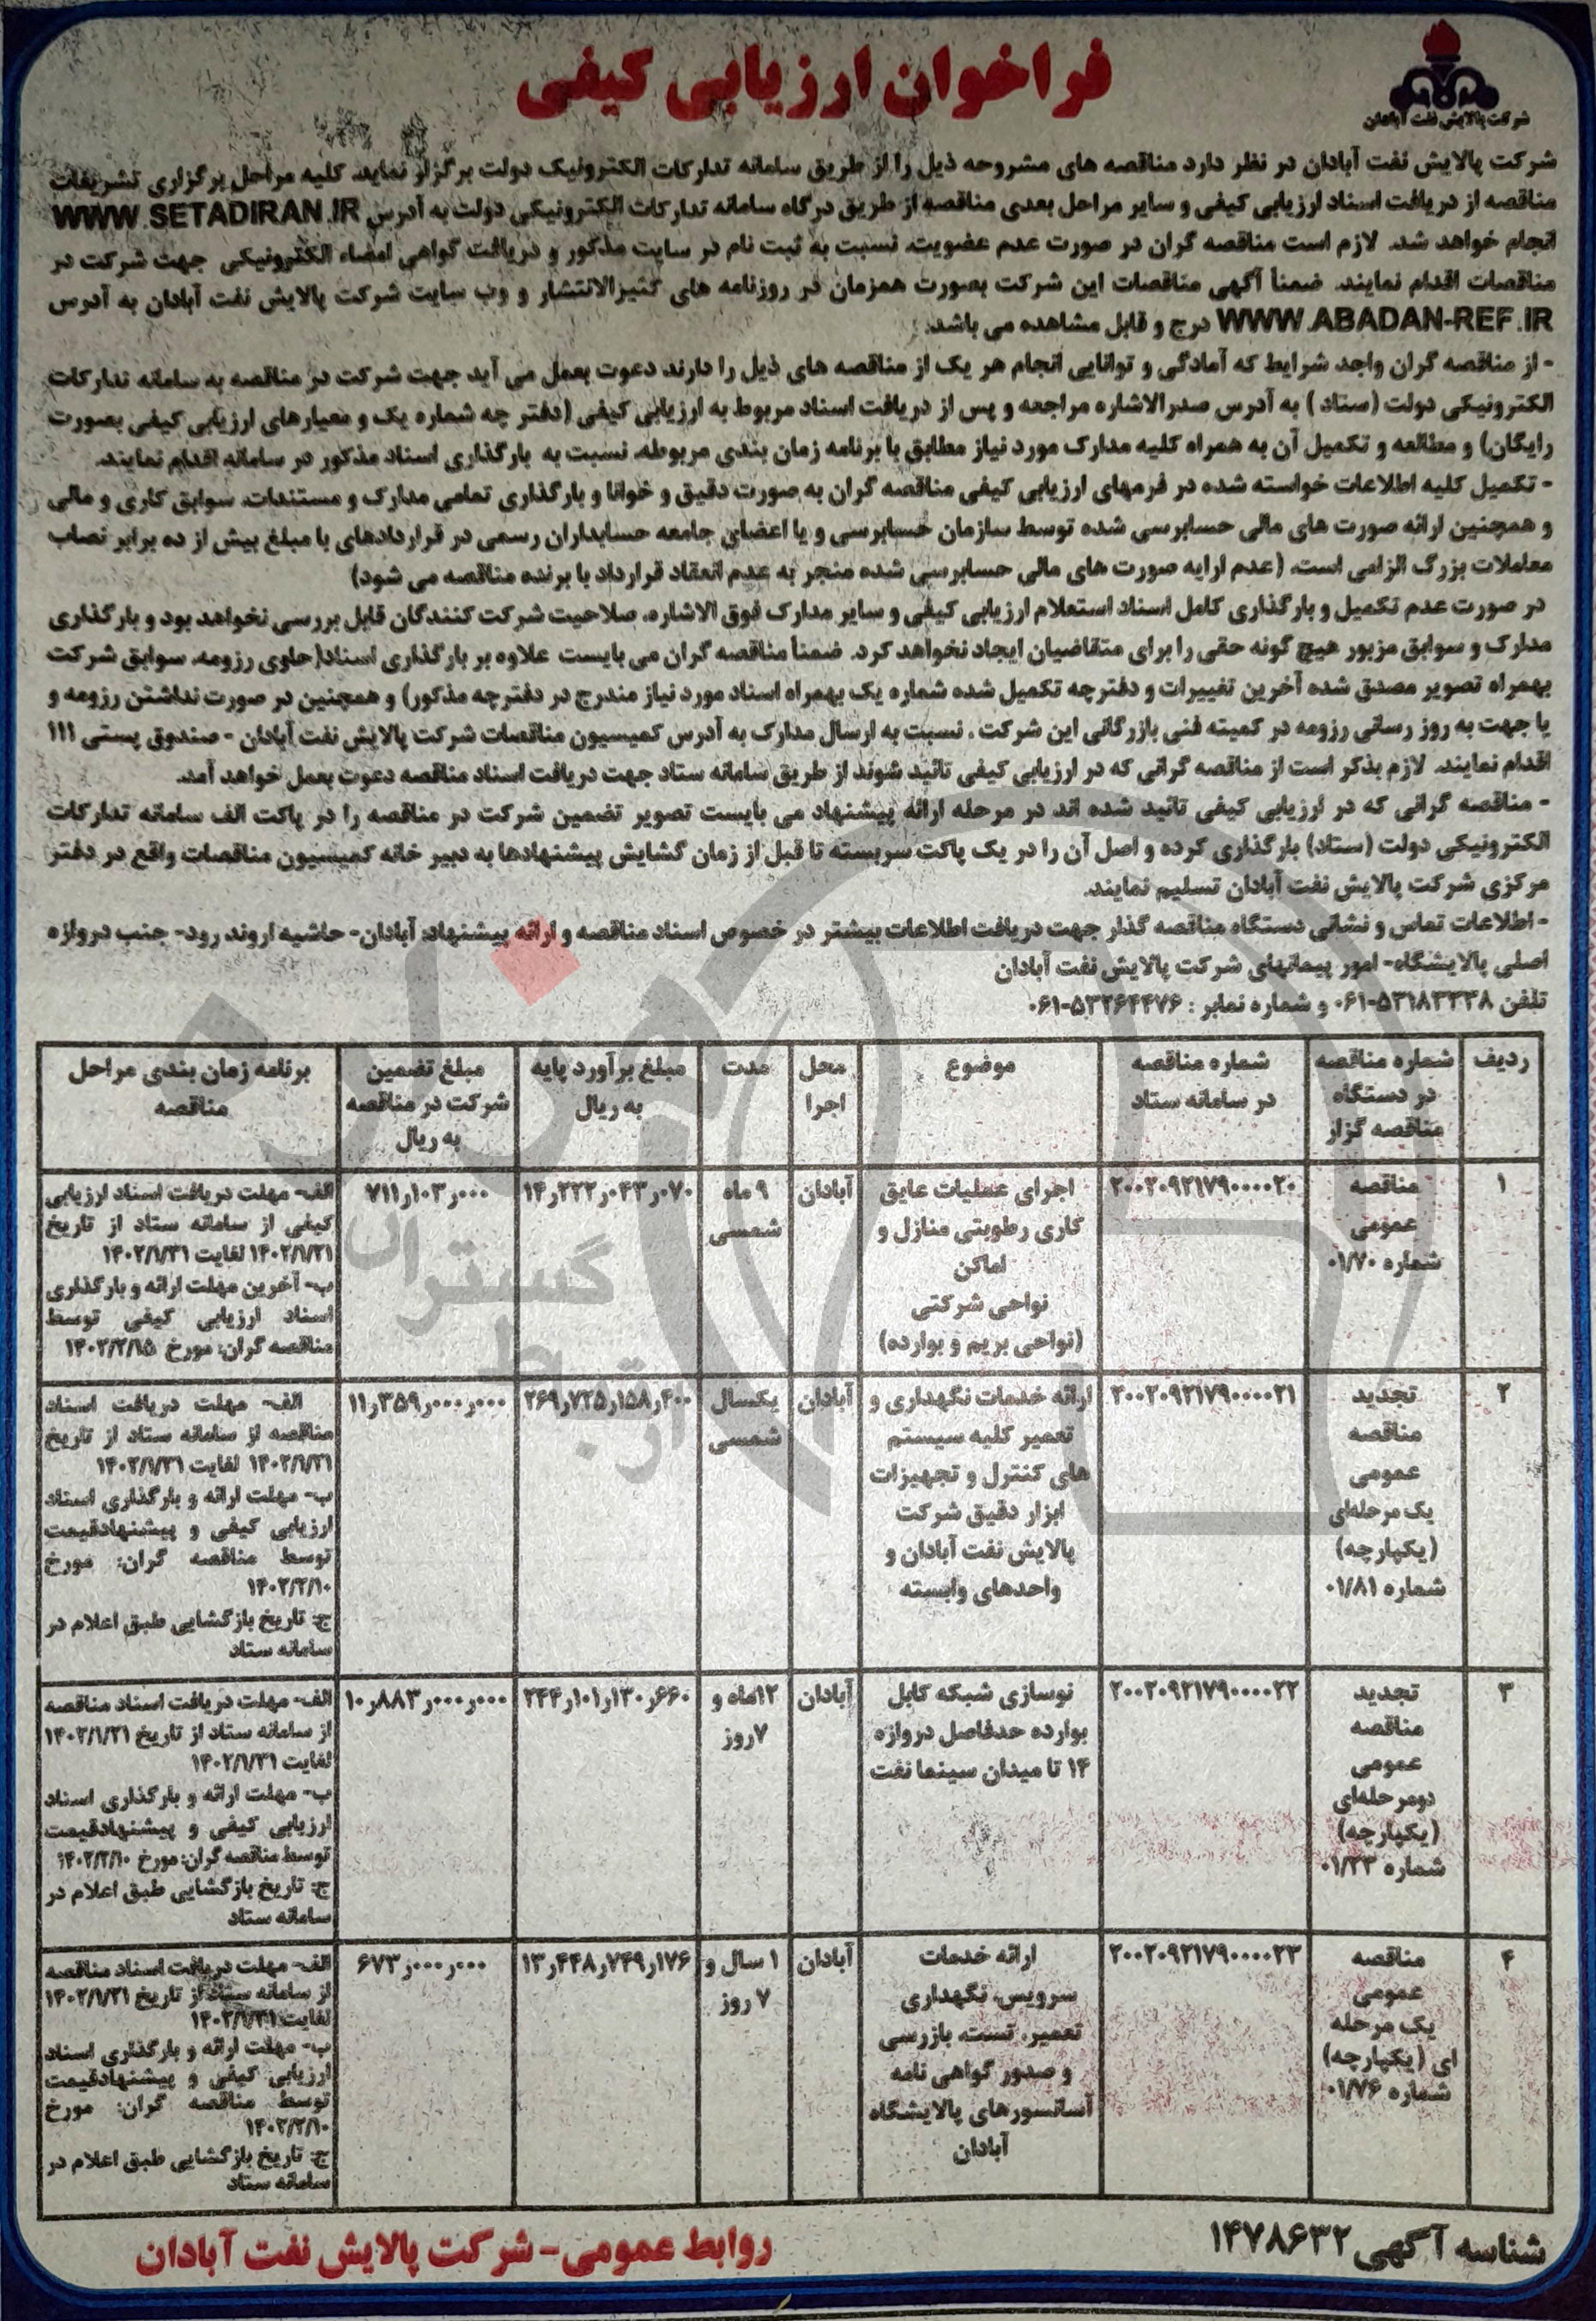 شرکت پالایش نفت آبادان
فراخوان ارزیابی کیفی
شرکت پالایش نفت آبادان در نظر دارد مناقصه های مشروحه ذیل را از طریق سامانه تدارکات الکترونیک دولت برگزار نماید. کلیه مراحل برگزاری تشریفات
مناقصه از دریافت اسناد ارزیابی کیفی و سایر مراحل بعدی مناقصه از طریق درگاه سامانه تدارکات الکترونیکی دولت به آدرس WWW.SETADIRAN.IR
انجام خواهد شد. لازم است مناقصه گران در صورت عدم عضویت، نسبت به ثبت نام در سایت مذکور و دریافت گواهی امضاء الکترونیکی جهت شرکت در
مناقصات اقدام نمایند. ضمناً آگهی مناقصات این شرکت بصورت همزمان در روزنامه های کثیرالانتشار و وب سایت شرکت پالایش نفت آبادان به آدرس
WWW.ABADAN-REF.IR درج و قابل مشاهده می باشد.
- از مناقصه گران واجد شرایط که آمادگی و توانایی انجام هر یک از مناقصه های ذیل را دارند دعوت بعمل می آید جهت شرکت در مناقصه به سامانه تدارکات
الکترونیکی دولت (ستاد ) به آدرس صدرالاشاره مراجعه و پس از دریافت اسناد مربوط به ارزیابی کیفی (دفتر چه شماره یک و معیارهای ارزیابی کیفی بصورت
رایگان) و مطالعه و تکمیل آن به همراه کلیه مدارک مورد نیاز مطابق با برنامه زمان بندی مربوطه، نسبت به بارگذاری اسناد مذکور در سامانه اقدام نمایند.
- تکمیل کلیه اطلاعات خواسته شده در فرمهای ارزیابی کیفی مناقصه گران به صورت دقیق و خوانا و بارگذاری تمامی مدارک و مستندات، سوابق کاری و مالی
و همچنین ارائه صورت های مالی حسابرسی شده توسط سازمان حسابرسی و یا اعضای جامعه حسابداران رسمی در قراردادهای با مبلغ بیش از ده برابر نصاب
معاملات بزرگ الزامی است. (عدم ارایه صورت های مالی حسابرسی شده منجر به عدم انعقاد قرارداد با برنده مناقصه می شود)
در صورت عدم تکمیل و بارگذاری کامل اسناد استعلام ارزیابی کیفی و سایر مدارک فوق الاشاره، صلاحیت شرکت کنندگان قابل بررسی نخواهد بود و بارگذاری
مدارک و سوابق مزبور هیچ گونه حقی را برای متقاضیان ایجاد نخواهد کرد. ضمناً مناقصه گران می بایست علاوه بر بارگذاری اسناد(حاوی رزومه، سوابق شرکت
بهمراه تصویر مصدق شده آخرین تغییرات و دفترچه تکمیل شده شماره یک بهمراه اسناد مورد نیاز مندرج در دفترچه مذکور) و همچنین در صورت نداشتن رزومه و
یا جهت به روز رسانی رزومه در کمیته فنی بازرگانی این شرکت ، نسبت به ارسال مدارک به آدرس کمیسیون مناقصات شرکت پالایش نفت آبادان - صندوق پستی ۱۱۱
اقدام نمایند. لازم بذکر است از مناقصه گرانی که در ارزیابی کیفی تائید شوند از طریق سامانه ستاد جهت دریافت اسناد مناقصه دعوت بعمل خواهد آمد.
- مناقصه گرانی که در ارزیابی کیفی تائید شده اند، در مرحله ارائه پیشنهاد می بایست تصویر تضمین شرکت در مناقصه را در پاکت الف سامانه تدارکات
الکترونیکی دولت (ستاد) بارگذاری کرده و اصل آن را در یک پاکت سربسته تا قبل از زمان گشایش پیشنهادها به دبیر خانه کمیسیون مناقصات واقع در دفتر
مرکزی شرکت پالایش نفت آبادان تسلیم نمایند.
- اطلاعات تماس و نشانی دستگاه مناقصه گذار جهت دریافت اطلاعات بیشتر در خصوص اسناد مناقصه و ارائه پیشنهاد: آبادان- حاشیه اروند رود- جنب دروازه
اصلی پالایشگاه- امور پیمانهای شرکت پالایش نفت آبادان
تلفن ۵۳۱۸۳۳۳۸-۰۶۱ و شماره نمابر : ۵۳۲۶۴۴۷۶-۰۶۱
ردیف
شماره مناقصه
در دستگاه
مناقصه گزار
شماره مناقصه
در سامانه ستاد
موضوع
محل
اجرا
مدت
مبلغ برآورد پایه
به ریال
مبلغ تضمین
شرکت در مناقصه
به ریال
برنامه زمان بندی مراحل
مناقصه
۱
مناقصه
عمومی
شماره ۰۱/۷۰
۲۰۰۲۰۹۲۱۷۹۰۰۰۰۲۰
اجرای عملیات عایق
کاری رطوبتی منازل و
اماکن
نواحی شرکتی
(نواحی بریم و بوارده)
آبادان
۹ ماه
شمسی
۱۴٫۲۲۲٫۰۴۳٫۰۷۰
۷۱۱٫۱۰۳٫۰۰۰
الف- مهلت دریافت اسناد ارزیابی
کیفی از سامانه ستاد از تاریخ
۱۴۰۲/۱/۲۱ لغایت ۱۴۰۲/۱/۳۱
ب- آخرین مهلت ارائه و بارگذاری
اسناد ارزیابی کیفی توسط
مناقصه گران: مورخ ۱۴۰۲/۲/۱۵
۲
تجدید
مناقصه
عمومی
یک مرحله‌ای
(یکپارچه)
شماره ۰۱/۸۱
۲۰۰۲۰۹۲۱۷۹۰۰۰۰۲۱
ارائه خدمات نگهداری و
تعمیر کلیه سیستم
های کنترل و تجهیزات
ابزار دقیق شرکت
پالایش نفت آبادان و
واحدهای وابسته
آبادان
یکسال
شمسی
۲۶۹٫۷۲۵٫۱۵۸٫۴۰۰
۱۱٫۳۵۹٫۰۰۰٫۰۰۰
الف- مهلت دریافت اسناد
مناقصه از سامانه ستاد از تاریخ
۱۴۰۲/۱/۲۱ لغایت ۱۴۰۲/۱/۳۱
ب- مهلت ارائه و بارگذاری اسناد
ارزیابی کیفی و پیشنهادقیمت
توسط مناقصه گران: مورخ
۱۴۰۲/۲/۱۰
ج: تاریخ بازگشایی طبق اعلام در
سامانه ستاد
۳
تجدید
مناقصه
عمومی
دومرحله‌ای
(یکپارچه)
شماره ۰۱/۲۳
۲۰۰۲۰۹۲۱۷۹۰۰۰۰۲۲
نوسازی شبکه کابل
بوارده حدفاصل دروازه
۱۴ تا میدان سینما نفت
آبادان
۱۲ماه و
۷روز
۲۴۴٫۱۰۱٫۱۳۰٫۶۶۰
۱۰٫۸۸۳٫۰۰۰٫۰۰۰
الف- مهلت دریافت اسناد مناقصه
از سامانه ستاد از تاریخ ۱۴۰۲/۱/۲۱
لغایت ۱۴۰۲/۱/۳۱
ب- مهلت ارائه و بارگذاری اسناد
ارزیابی کیفی و پیشنهادقیمت
توسط مناقصه گران: مورخ ۱۴۰۲/۲/۱۰
ج: تاریخ بازگشایی طبق اعلام در
سامانه ستاد
۴
مناقصه
عمومی
یک مرحله
ای (یکپارچه)
شماره ۰۱/۷۶
۲۰۰۲۰۹۲۱۷۹۰۰۰۰۲۳
ارائه خدمات
سرویس، نگهداری
تعمیر، تست، بازرسی
و صدور گواهی نامه
آسانسورهای پالایشگاه
آبادان
آبادان
۱ سال و
۷ روز
۱۳٫۴۴۸٫۷۴۹٫۱۷۶
۶۷۳٫۰۰۰٫۰۰۰
الف- مهلت دریافت اسناد مناقصه
از سامانه ستاد از تاریخ ۱۴۰۲/۱/۲۱
لغایت ۱۴۰۲/۱/۳۱
ب- مهلت ارائه و بارگذاری اسناد
ارزیابی کیفی و پیشنهادقیمت
توسط مناقصه گران: مورخ
۱۴۰۲/۲/۱۰
ج: تاریخ بازگشایی طبق اعلام در
سامانه ستاد
شناسه آگهی ۱۴۷۸۶۳۲
روابط عمومی- شرکت پالایش نفت آبادان